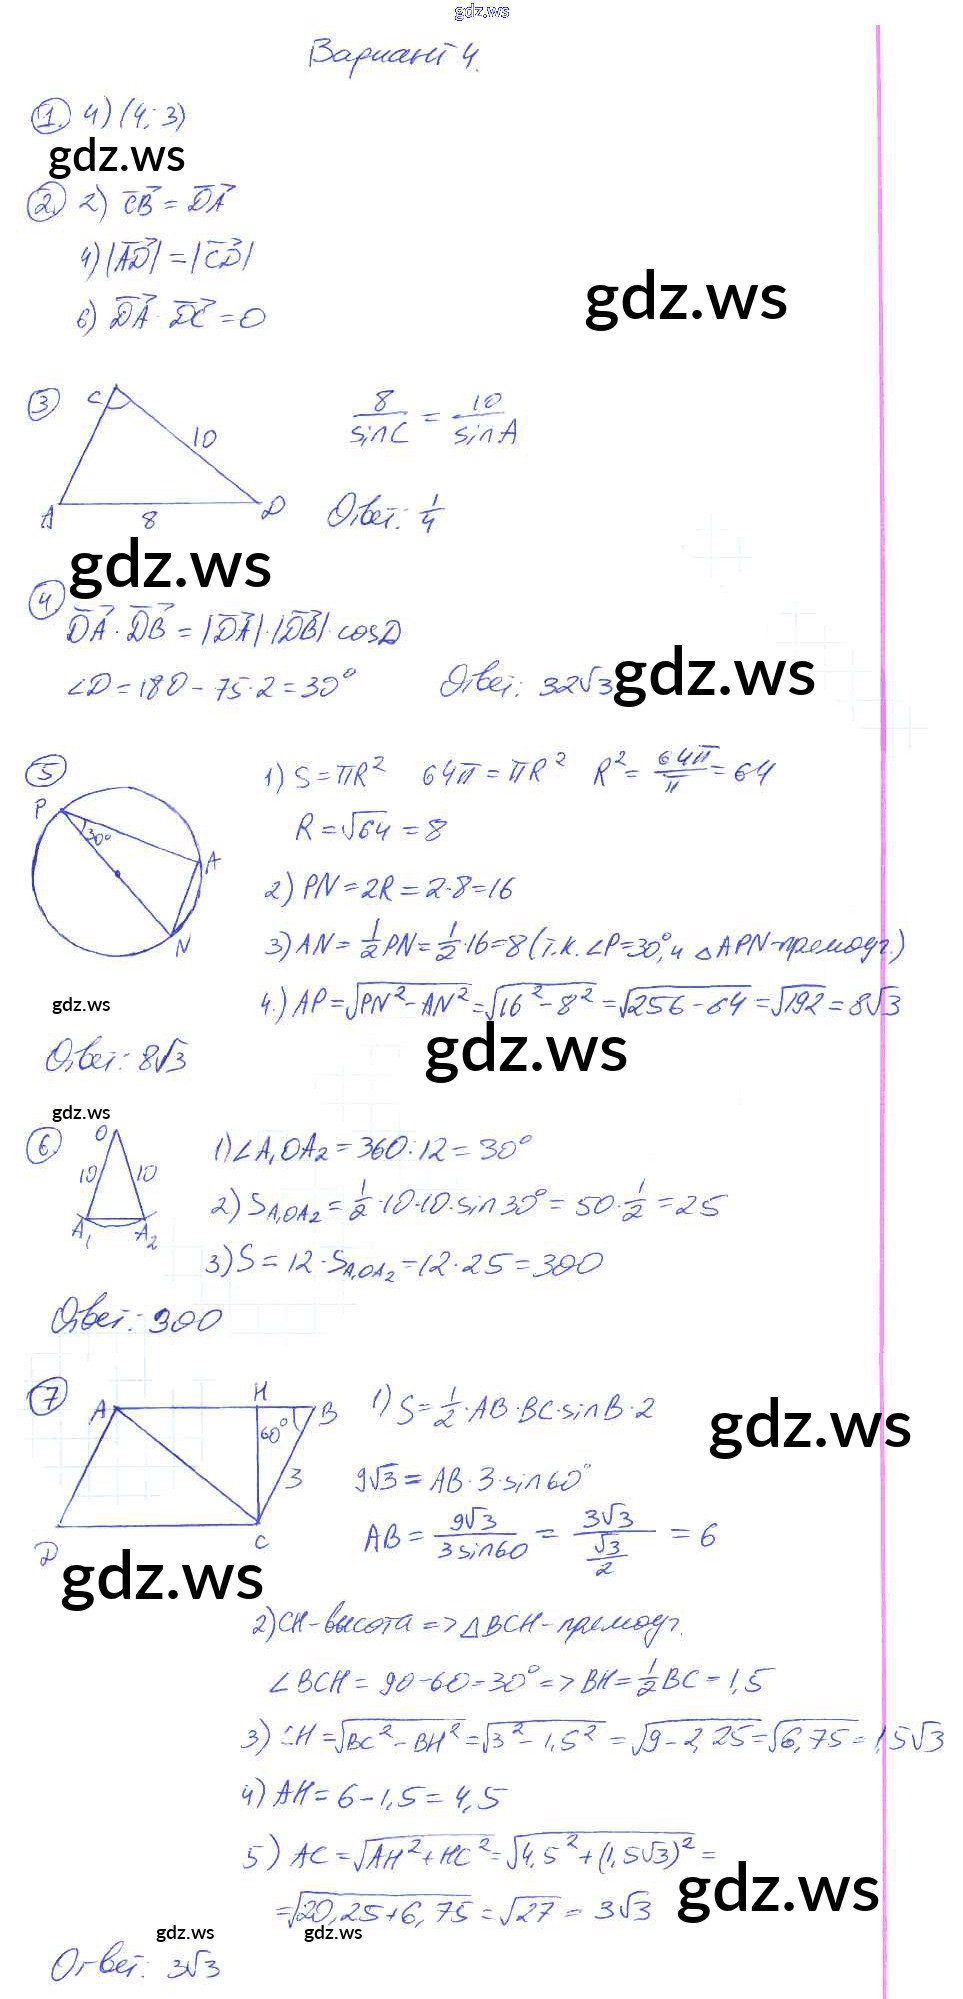 gdz.ws
Вариант 4.
1. 4) (4; 3)
gdz.ws
2. 2) CB = DA
4) |AD| = |CD|
gdz.ws
6) DA · DC = 0
3 C 8/sinC = 10/sinA
10
A 8 D Ответ: 1/4
gdz.ws
4
DA · DB = |DA| · |DB| · cosD
∠D = 180 - 75·2 = 30° Ответ: 32√3
gdz.ws
5 1) S = πR² 64π = πR² R² = 64π/π = 64
P 30° A N
R = √64 = 8
2) PN = 2R = 2·8 = 16
3) AN = 1/2 PN = 1/2 · 16 = 8 (т.к. ∠P = 30°, и △APN - прямоуг.)
4.) AP = √(PN² - AN²) = √(16² - 8²) = √(256 - 64) = √192 = 8√3
gdz.ws
gdz.ws
Ответ: 8√3
gdz.ws
6. O 1) ∠A₁OA₂ = 360 : 12 = 30°
10 10
2) S A₁OA₂ = 1/2 · 10 · 10 · sin30° = 50 · 1/2 = 25
A₁ A₂
3) S = 12 · S A₁OA₂ = 12 · 25 = 300
Ответ: 300
7 A H B 1) S = 1/2 · AB · BC · sinB · 2
60° 3
gdz.ws
9√3 = AB · 3 · sin60°
D C AB = 9√3/3sin60 = 3√3/(√3/2) = 6
gdz.ws
2) CH - высота => △BCH - прямоуг.
∠BCH = 90 - 60 = 30° => BH = 1/2 BC = 1,5
3) CH = √(BC² - BH²) = √(3² - 1,5²) = √(9 - 2,25) = √6,75 = 1,5√3
4) AH = 6 - 1,5 = 4,5
5) AC = √(AH² + HC²) = √(4,5² + (1,5√3)²) =
gdz.ws
= √(20,25 + 6,75) = √27 = 3√3
gdz.ws gdz.ws
Ответ: 3√3